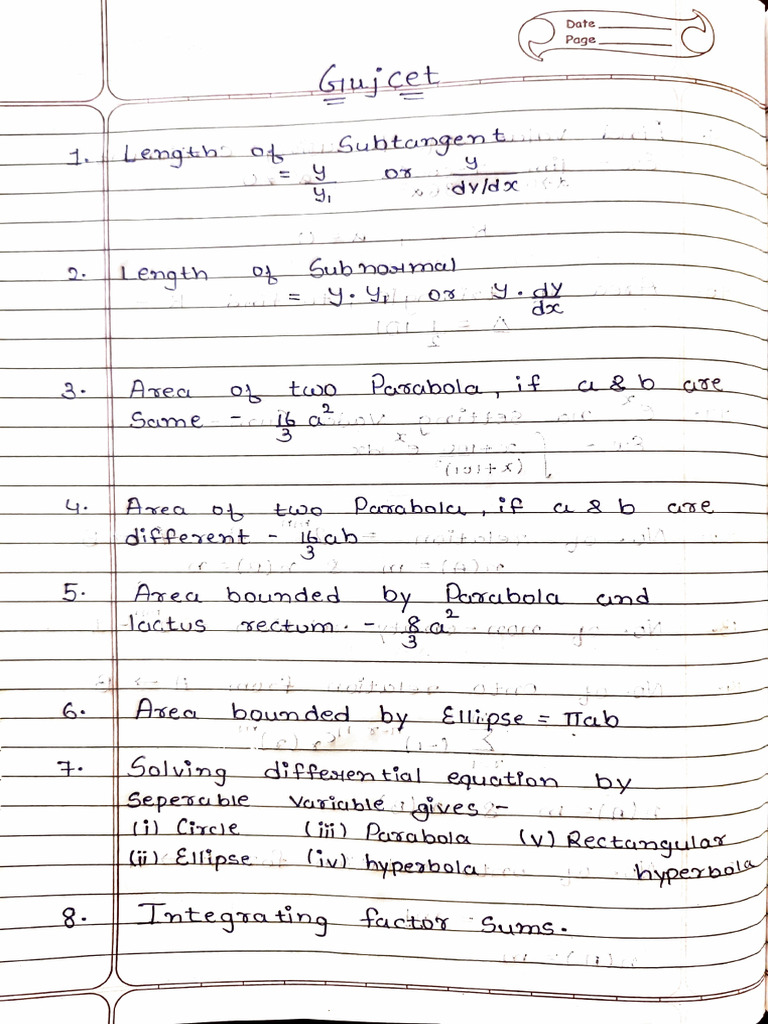 Date
Page
Gujcet
1. Length of Subtangent
= y/y₁ or y/(dy/dx)
2. Length of Subnormal
= y·y₁ or y·dy/dx
3. Area of two Parabola, if a & b are
Same - 16/3 a²
4. Area of two Parabola, if a & b are
different - 16/3 ab
5. Area bounded by Parabola and
lactus rectum. - 8/3 a²
6. Area bounded by Ellipse = πab
7. Solving differential equation by
Seperable variable gives:-
(i) Circle (iii) Parabola (v) Rectangular
(ii) Ellipse (iv) hyperbola hyperbola
8. Integrating factor sums.